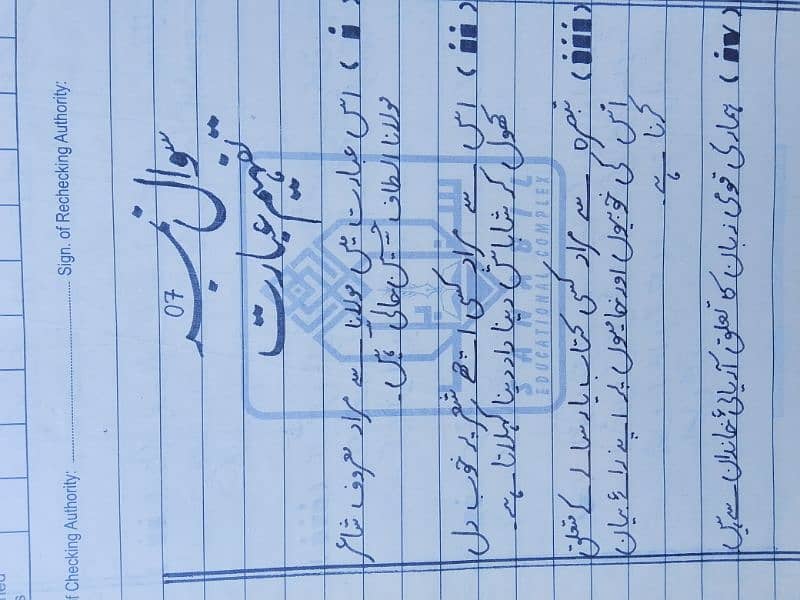 of Checking Authority: Sign. of Rechecking Authority:
سوال نمبر 07
تفہیم عبارت
(i) اس عبارت میں مولانا سے مراد معروف شاعر
مولانا الطاف حسین حالی ہیں۔
(ii) اس سے مراد کسی اچھے شعر پر خوب دل
کھول کر شاباش دینا داد دینا کہلاتا ہے۔
(iii) تبصرہ سے مراد کسی کتاب یا رسالے کے متعلق
اس کی خوبیوں اور خامیوں پر اپنی رائے بیان
کرنا ہے۔
(iv) ہماری قومی زبان کا تعلق آریائی خاندان سے ہیں
EDUCATIONAL COMPLEX